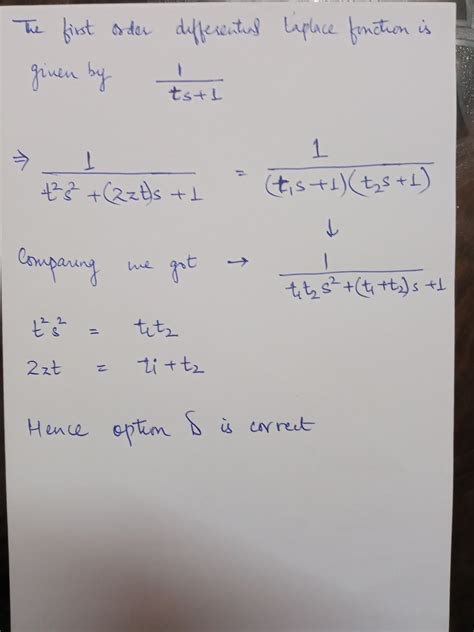 The first order differential Laplace function is
given by 1/(ts+1)
⇒ 1/(t²s² + (2zt)s + 1) = 1/((t₁s+1)(t₂s+1))
↓
Comparing we got → 1/(t₁t₂s² + (t₁+t₂)s + 1)
t²s² = t₁t₂
2zt = t₁ + t₂
Hence option δ is correct